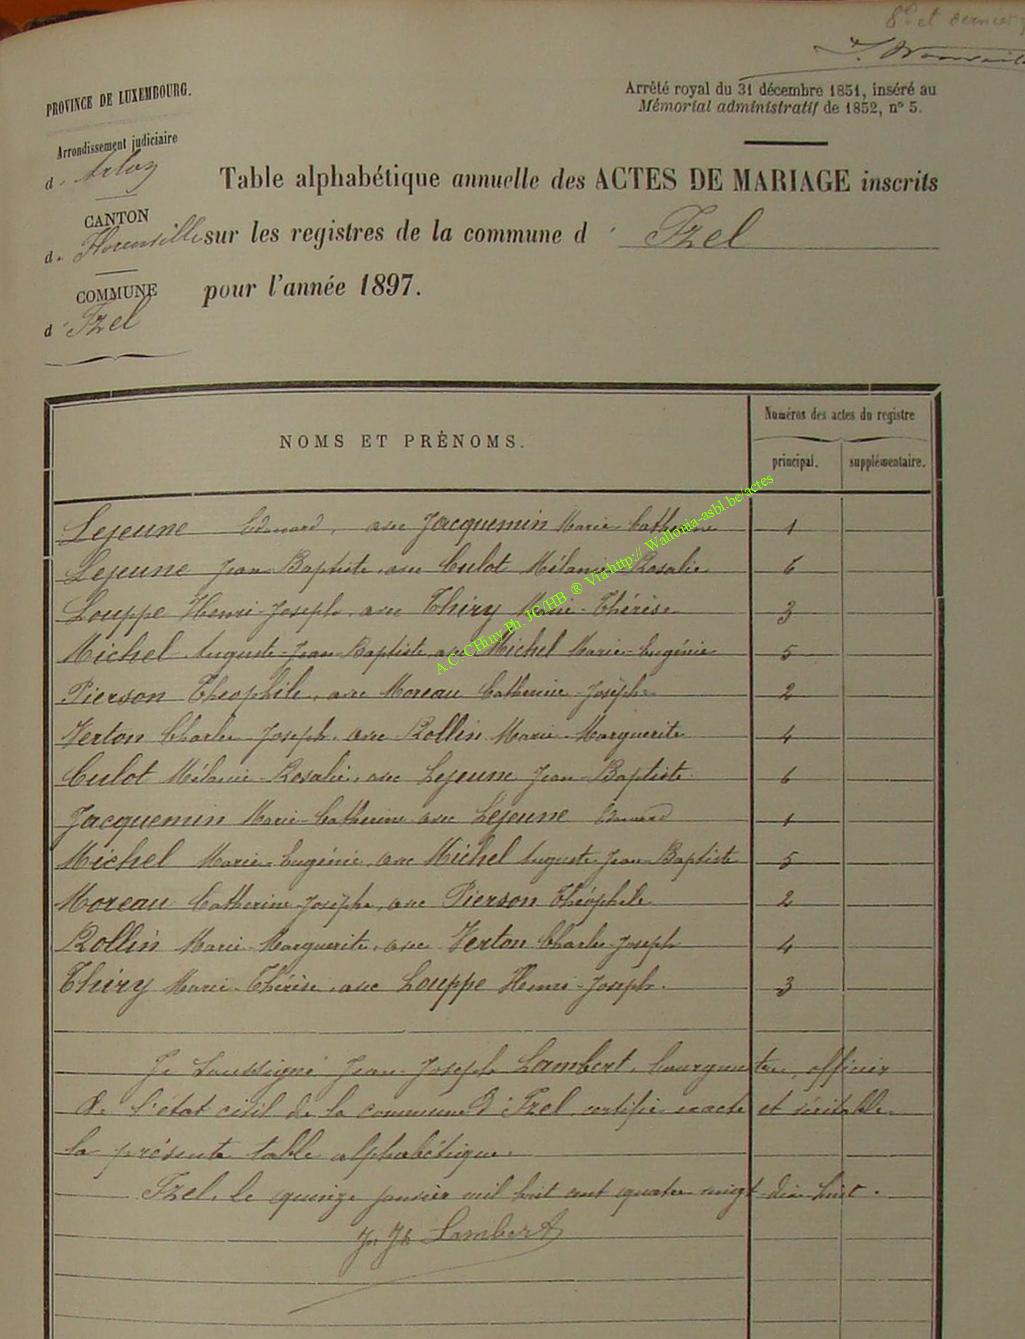 8e et dernier
PROVINCE DE LUXEMBOURG.
Arrêté royal du 31 décembre 1851, inséré au
Mémorial administratif de 1852, n° 5.
Arrondissement judiciaire
d. Arlon
Table alphabétique annuelle des ACTES DE MARIAGE inscrits
CANTON
d. Florenville
sur les registres de la commune d' Izel
COMMUNE
d' Izel
pour l'année 1897.
NOMS ET PRÉNOMS.
Numéros des actes du registre
principal. supplémentaire.
Lejeune Edouard, avec Jacquemin Marie Catherine 1
Lejeune Jean Baptiste, avec Culot Mélanie-Rosalie 6
Louppe Henri-Joseph, avec Thiry Marie-Thérèse 3
Michel Auguste-Jean-Baptiste, avec Michel Marie-Eugénie 5
Pierson Théophile, avec Moreau Catherine-Josèphe 2
Verton Charles Joseph, avec Rollin Marie-Marguerite 4
Culot Mélanie-Rosalie, avec Lejeune Jean-Baptiste 6
Jacquemin Marie-Catherine avec Lejeune Edouard 1
Michel Marie-Eugénie, avec Michel Auguste-Jean-Baptiste 5
Moreau Catherine-Josèphe, avec Pierson Théophile 2
Rollin Marie-Marguerite, avec Verton Charles-Joseph 4
Thiry Marie-Thérèse, avec Louppe Henri-Joseph. 3
Je soussigné Jean-Joseph Lambert, bourgmestre, officier
de l'état civil de la commune d'Izel, certifie exacte et véritable
la présente table alphabétique.
Izel, le quinze janvier mil huit cent quatre vingt-dix-huit.
J. Jh Lambert
A.C-CHiny Ph. JC/HB. ® Via:http:// Wallonia-asbl.be/actes